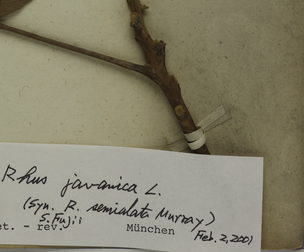 Rhus javanica L.
(Syn. R. semialata Murray)
S. Fujii
et. - rev. München Feb. 2, 2001